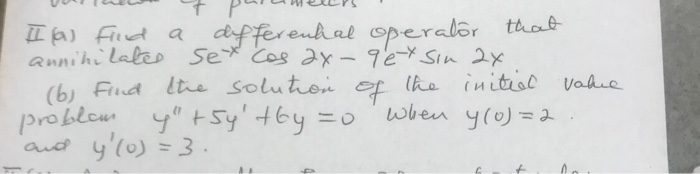 of parameters
II (a) Find a differenhal operator that
annihilates 5e^-x cos 2x - 9e^-x sin 2x
(b) Find the solution of the initial value
problem y" + 5y' + 6y = 0 when y(0) = 2.
and y'(0) = 3.